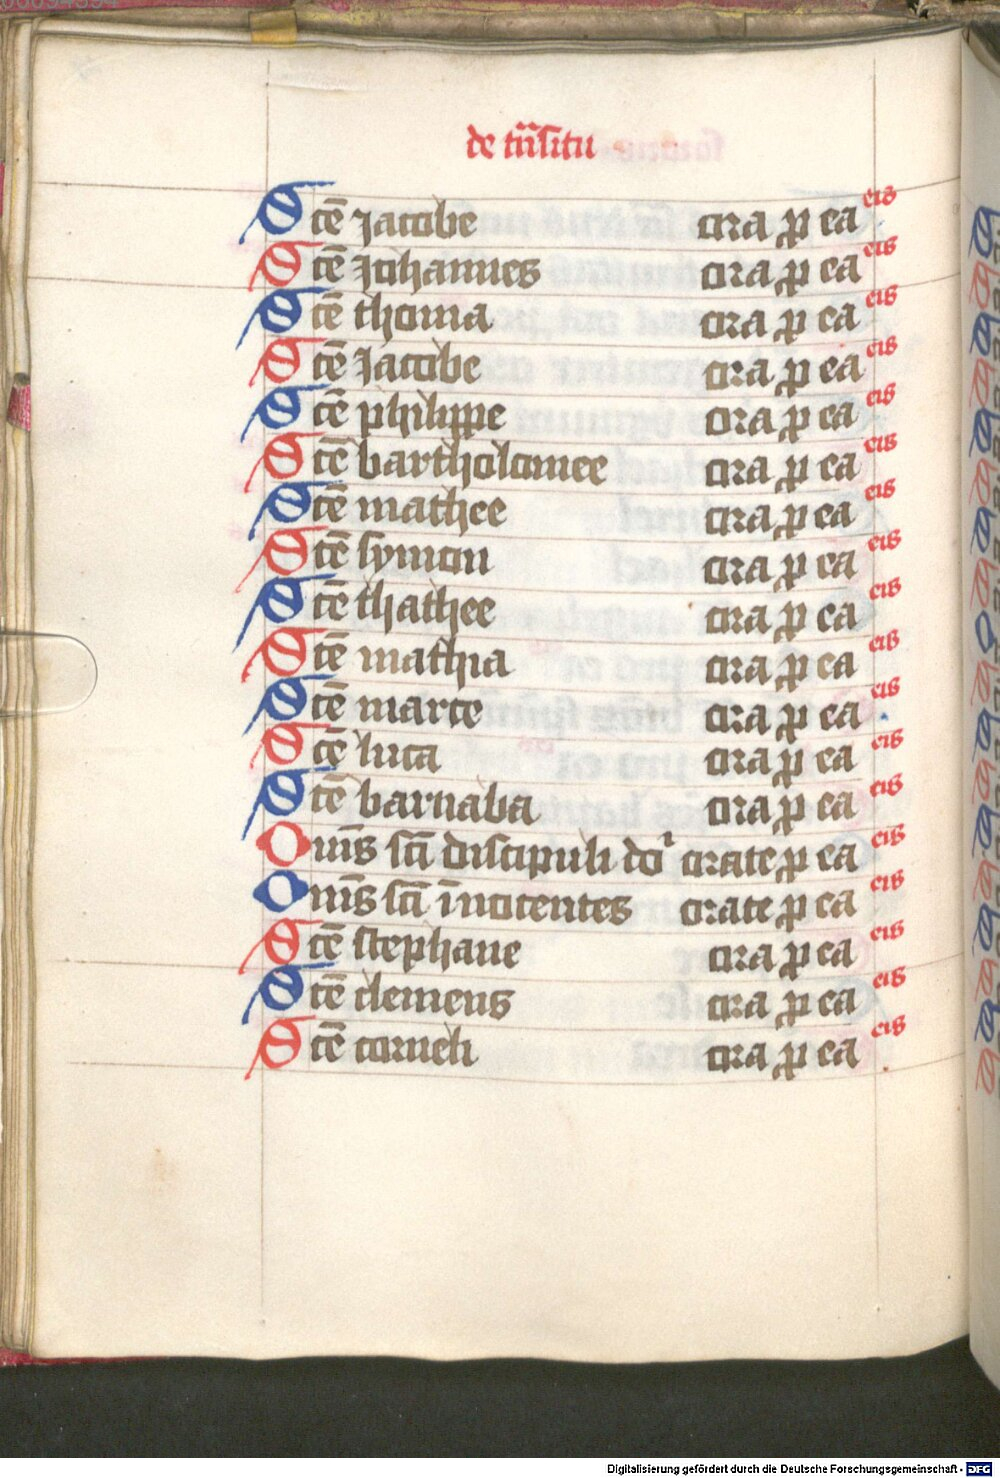 de tn̄situ
Scē Jacobe ora ꝓ ea eis
Scē Johannes ora ꝓ ea eis
Scē thoma ora ꝓ ea eis
Scē Jacobe ora ꝓ ea eis
Scē philippe ora ꝓ ea eis
Scē bartholomee ora ꝓ ea eis
Scē mathee ora ꝓ ea eis
Scē symon ora ꝓ ea eis
Scē thathee ora ꝓ ea eis
Scē mathia ora ꝓ ea eis
Scē marce ora ꝓ ea eis
Scē luca ora ꝓ ea eis
Scē barnaba ora ꝓ ea eis
Om̄s sc̄i discipuli do͏ᷤ orate ꝓ ea eis
Om̄s sc̄i īnocentes orate ꝓ ea eis
Scē stephane ora ꝓ ea eis
Scē clemens ora ꝓ ea eis
Scē corneli ora ꝓ ea eis
Digitalisierung gefördert durch die Deutsche Forschungsgemeinschaft - DFG